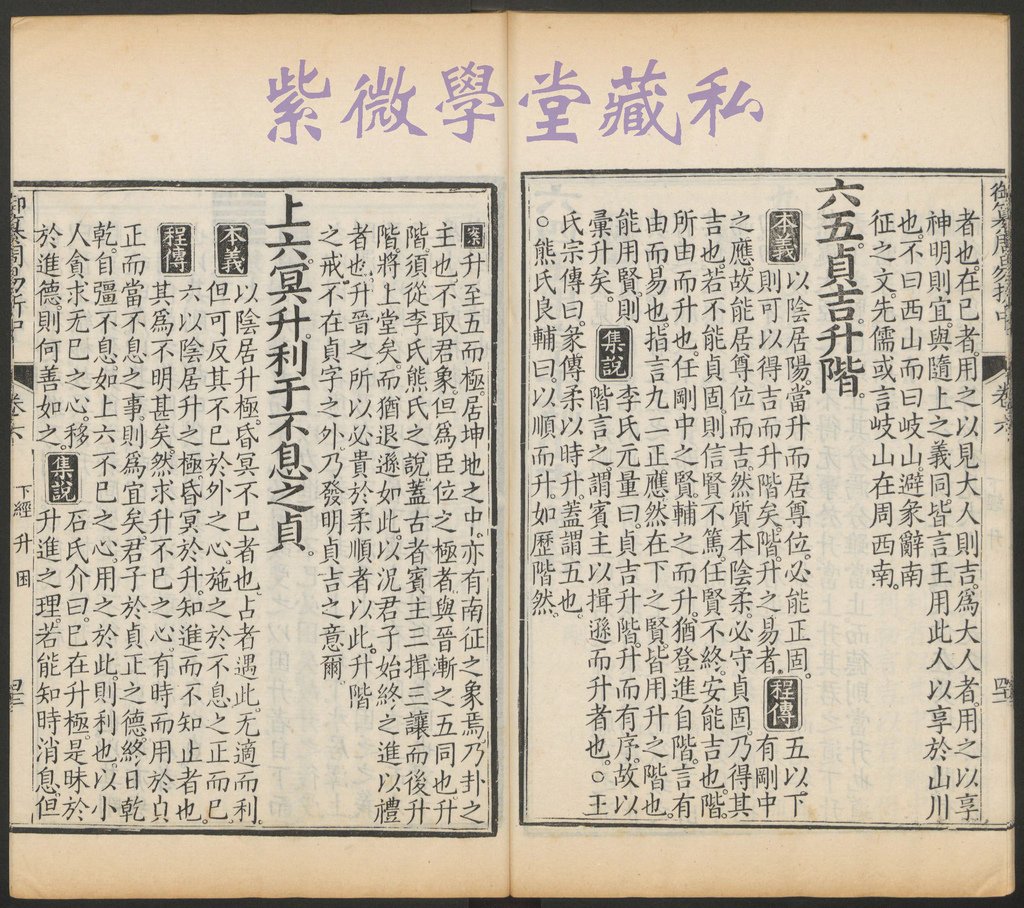 紫微學堂藏私
者也。在已者用之以見大人則吉。為大人者用之以享
神明則宜。與隨上之義同。皆言王用此人以享於山川
也。不曰西山而曰岐山。避彖辭南
征之文。先儒或言岐山在周西南。
六五。貞吉升階。
本義 以陰居陽。當升而居尊位。必能正固。程傳 五以下
則可以得吉而升階矣。階升之易者。有剛中
之應。故能居尊位而吉。然質本陰柔。必守貞固。乃得其
吉也。若不能貞固。則信賢不篤。任賢不終。安能吉也。階。
所由而升也。任剛中之賢。輔之而升。猶登進自階。言有
由而易也。指言九二正應。然在下之賢。皆用升之階也。
能用賢。則 集說 李氏元量曰。貞吉升階。升而有序。故以
彙升矣。階言之。謂賓主以揖遜而升者也。○王
氏宗傳曰。彖傳柔以時升。蓋謂五也。
○熊氏良輔曰。以順而升。如歷階然。
案 升至五而極。居坤地之中。亦有南征之象焉。乃卦之
主也。不取君象。但為臣位之極者。與晉漸之五同也。升
階須從李氏熊氏之說。蓋古者賓主三揖三讓而後升
階。將上堂矣。而猶退遜如此。以況君子始終之進以禮
者也。升晉之所以必貴於柔順者以此。升階
之戒。不在貞字之外。乃發明貞吉之意爾。
上六。冥升。利于不息之貞。
本義 以陰居升極。昏冥不已者也。占者遇此。无適而利。
但可反其不已於外之心。施之於不息之正而已。
程傳 六以陰居升之極。昏冥於升。知進而不知止者也。
其為不明甚矣。然求升不已之心。有時而用於貞
正而當不息之事。則為宜矣。君子於貞正之德。終日乾
乾。自彊不息。如上六不已之心。用之於此。則利也。以小
人貪求无已之心。移
於進德。則何善如之。集說 石氏介曰。已在升極。是昧於
升進之理。若能知時消息。但
御纂周易折中 卷六 下經 升 困